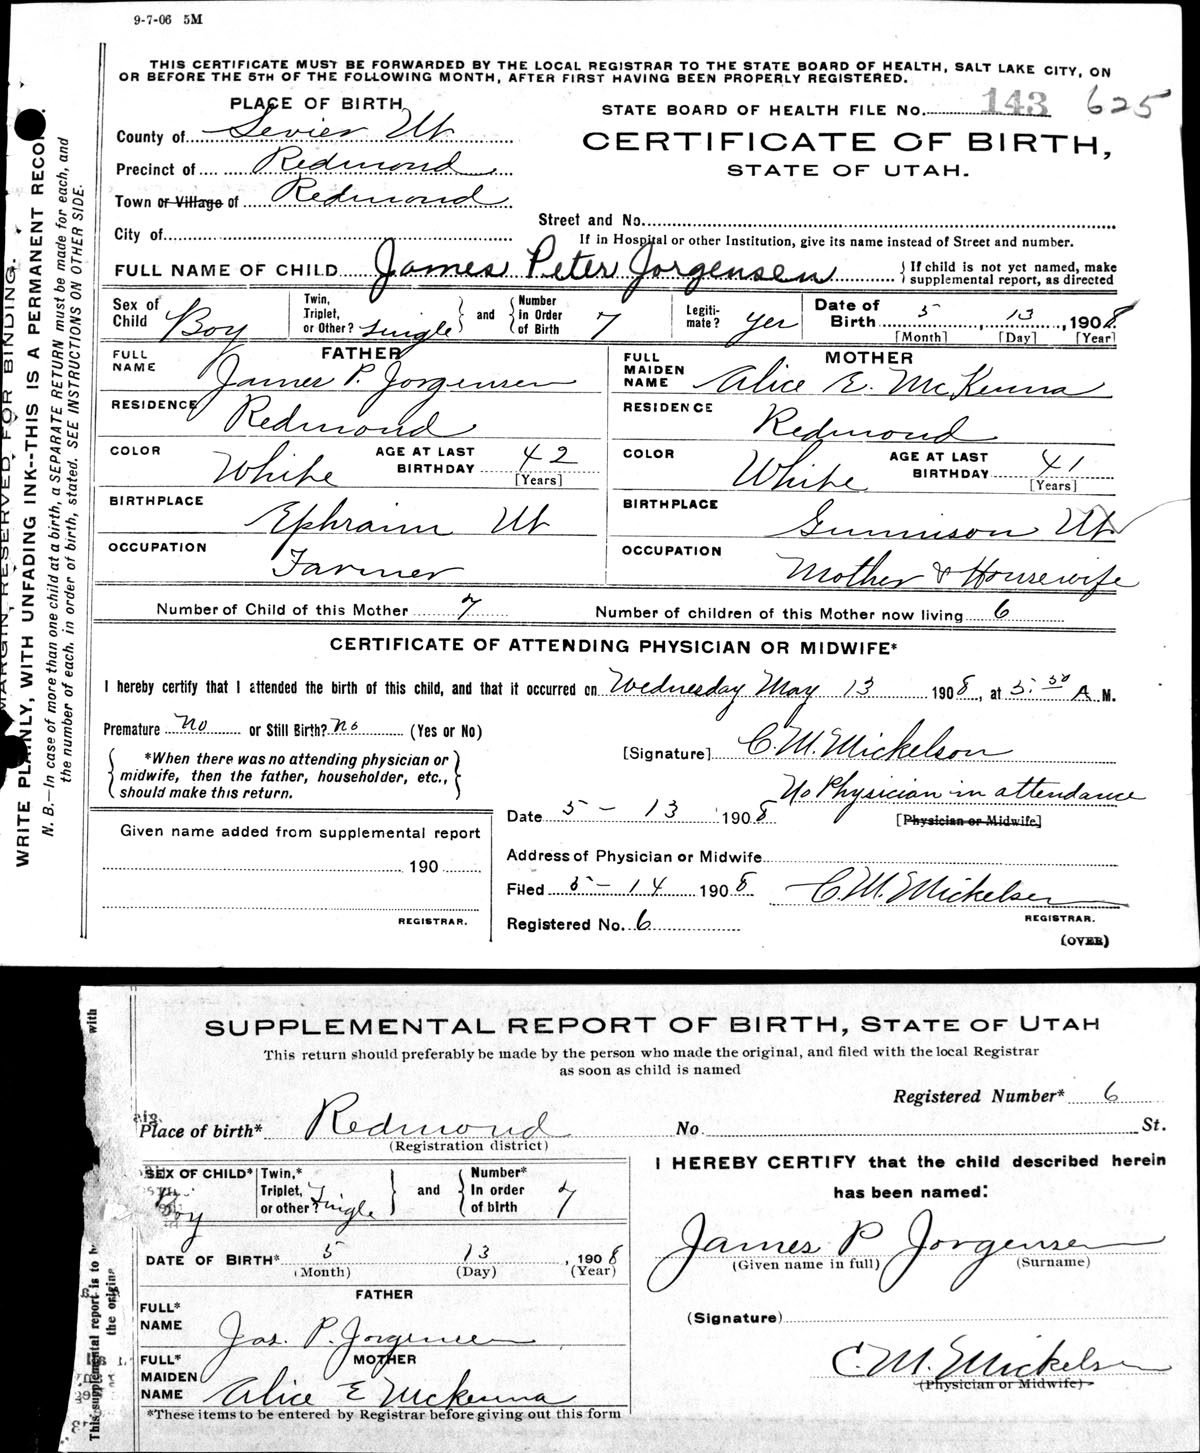 9-7-06 5M
THIS CERTIFICATE MUST BE FORWARDED BY THE LOCAL REGISTRAR TO THE STATE BOARD OF HEALTH, SALT LAKE CITY, ON
OR BEFORE THE 5TH OF THE FOLLOWING MONTH, AFTER FIRST HAVING BEEN PROPERLY REGISTERED.
PLACE OF BIRTH
STATE BOARD OF HEALTH FILE No. 143 625
County of Sevier Ut
CERTIFICATE OF BIRTH,
Precinct of Redmond
STATE OF UTAH.
Town or Village of Redmond
Street and No.
City of
If in Hospital or other Institution, give its name instead of Street and number.
FULL NAME OF CHILD James Peter Jorgensen
If child is not yet named, make
supplemental report, as directed
Sex of Child Boy
Twin, Triplet, or Other? Single and Number in Order of Birth 7
Legitimate? Yes
Date of Birth 5, 13, 1908
[Month] [Day] [Year]
FATHER
FULL NAME James P. Jorgensen
RESIDENCE Redmond
COLOR White AGE AT LAST BIRTHDAY 42
[Years]
BIRTHPLACE Ephraim Ut
OCCUPATION Farmer
MOTHER
FULL MAIDEN NAME Alice E. McKenna
RESIDENCE Redmond
COLOR White AGE AT LAST BIRTHDAY 41
[Years]
BIRTHPLACE Gunnison Ut
OCCUPATION Mother & Housewife
Number of Child of this Mother 7 Number of children of this Mother now living 6
CERTIFICATE OF ATTENDING PHYSICIAN OR MIDWIFE*
I hereby certify that I attended the birth of this child, and that it occurred on Wednesday May 13 1908, at 5:50 A. M.
Premature No or Still Birth? No (Yes or No)
[Signature] C. M. Mickelson
*When there was no attending physician or
midwife, then the father, householder, etc.,
should make this return.
No Physician in attendance
Date 5-13 1908
[Physician or Midwife]
Given name added from supplemental report
190
REGISTRAR.
Address of Physician or Midwife
Filed 5-14 1908 C. M. Mickelsen
REGISTRAR.
Registered No. 6
(OVER)
MARGIN RESERVED FOR BINDING.
WRITE PLAINLY, WITH UNFADING INK--THIS IS A PERMANENT RECORD.
N. B.—In case of more than one child at a birth, a SEPARATE RETURN must be made for each, and
the number of each, in order of birth, stated. SEE INSTRUCTIONS ON OTHER SIDE.
SUPPLEMENTAL REPORT OF BIRTH, STATE OF UTAH
This return should preferably be made by the person who made the original, and filed with the local Registrar
as soon as child is named
Registered Number* 6
Place of birth* Redmond No. St.
(Registration district)
SEX OF CHILD* Boy
Twin,* Triplet, or other? Single and Number* In order of birth 7
DATE OF BIRTH* 5 13, 1908
(Month) (Day) (Year)
FATHER
FULL* NAME Jas. P. Jorgensen
MOTHER
FULL* MAIDEN NAME Alice E McKenna
*These items to be entered by Registrar before giving out this form
I HEREBY CERTIFY that the child described herein
has been named:
James P Jorgensen
(Given name in full) (Surname)
(Signature)
C. M. Mickelsen
(Physician or Midwife)
with
This supplemental report is to
the origin